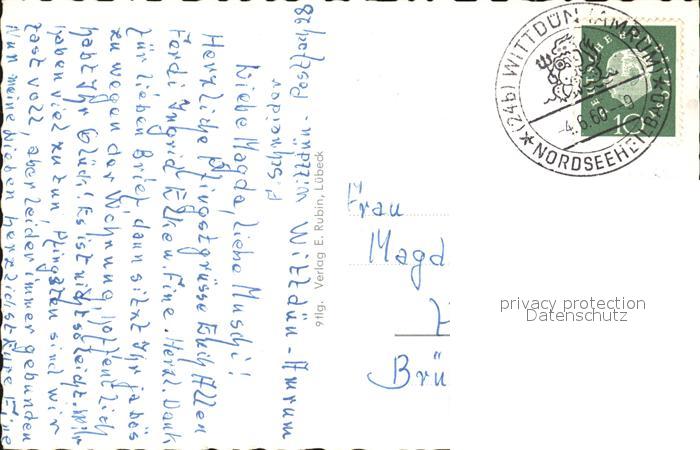 Postfach 28
Pisckeieior
Wittdün - Amrum
Liebe Magda, liebe Muschi!
Herzliche Pfingstgrüsse Euch Allen
Ferdi Ingrid Elke u. Eine. Herzl. Dank
für lieben Brief, dann sitzt Ihr ja bös
zu wegen der Wohnung, hoffentlich
habt Ihr Glück! Es ist nicht so leicht. Wir
haben viel zu tun, Pfingsten sind wir
fast voll, aber leider immer gebunden
Nun meine Lieben herzlichst Eure Eine
9flg. Verlag E. Rubin, Lübeck
(24b) WITTDÜN (AMRUM)
-4.6.60.-9
NORDSEEHEILBAD
10
Frau
Magd
Brü
privacy protection
Datenschutz